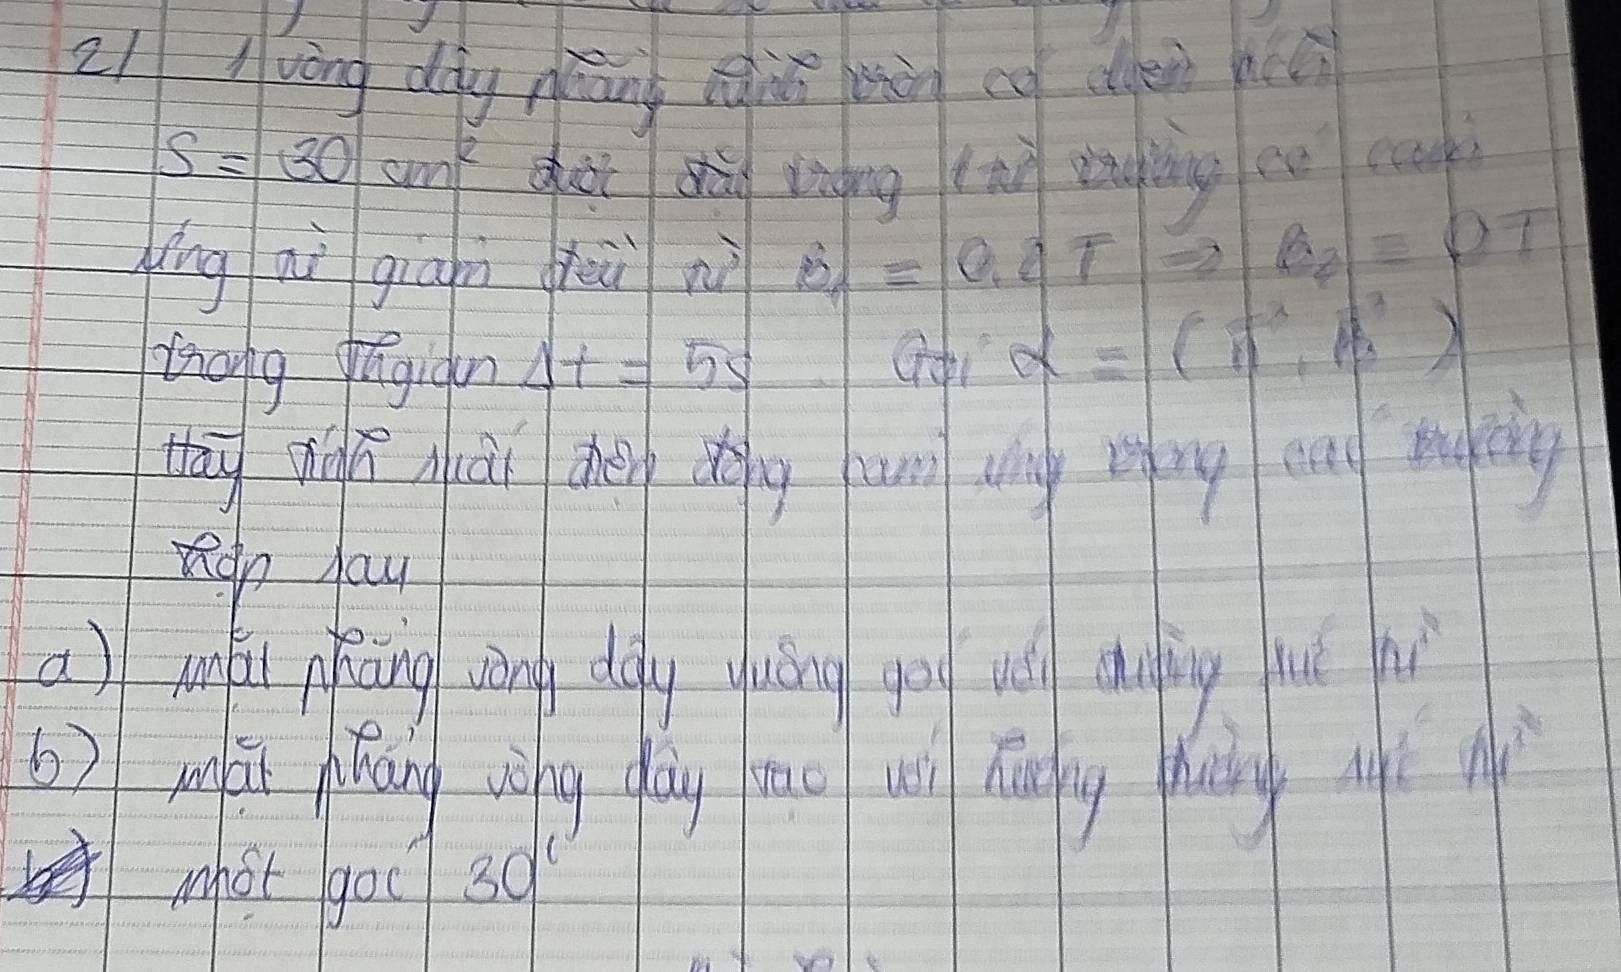 2/ 1 vòng dây phẳng hình tròn có diện tích
S = 30 cm² được đặt trong từ trường có cảm
ứng từ giảm đều từ B₁ = 0.2 T → B₂ = 0T
trong thgian Δt = 5s Gọi α = (n⃗, B⃗)
Hãy tính suất điện động cảm ứng trong các trường
hợp sau
a) mặt phẳng vòng dây vuông góc với đường sức từ
b) mặt phẳng vòng dây tạo với hướng đường sức từ
một góc 30°